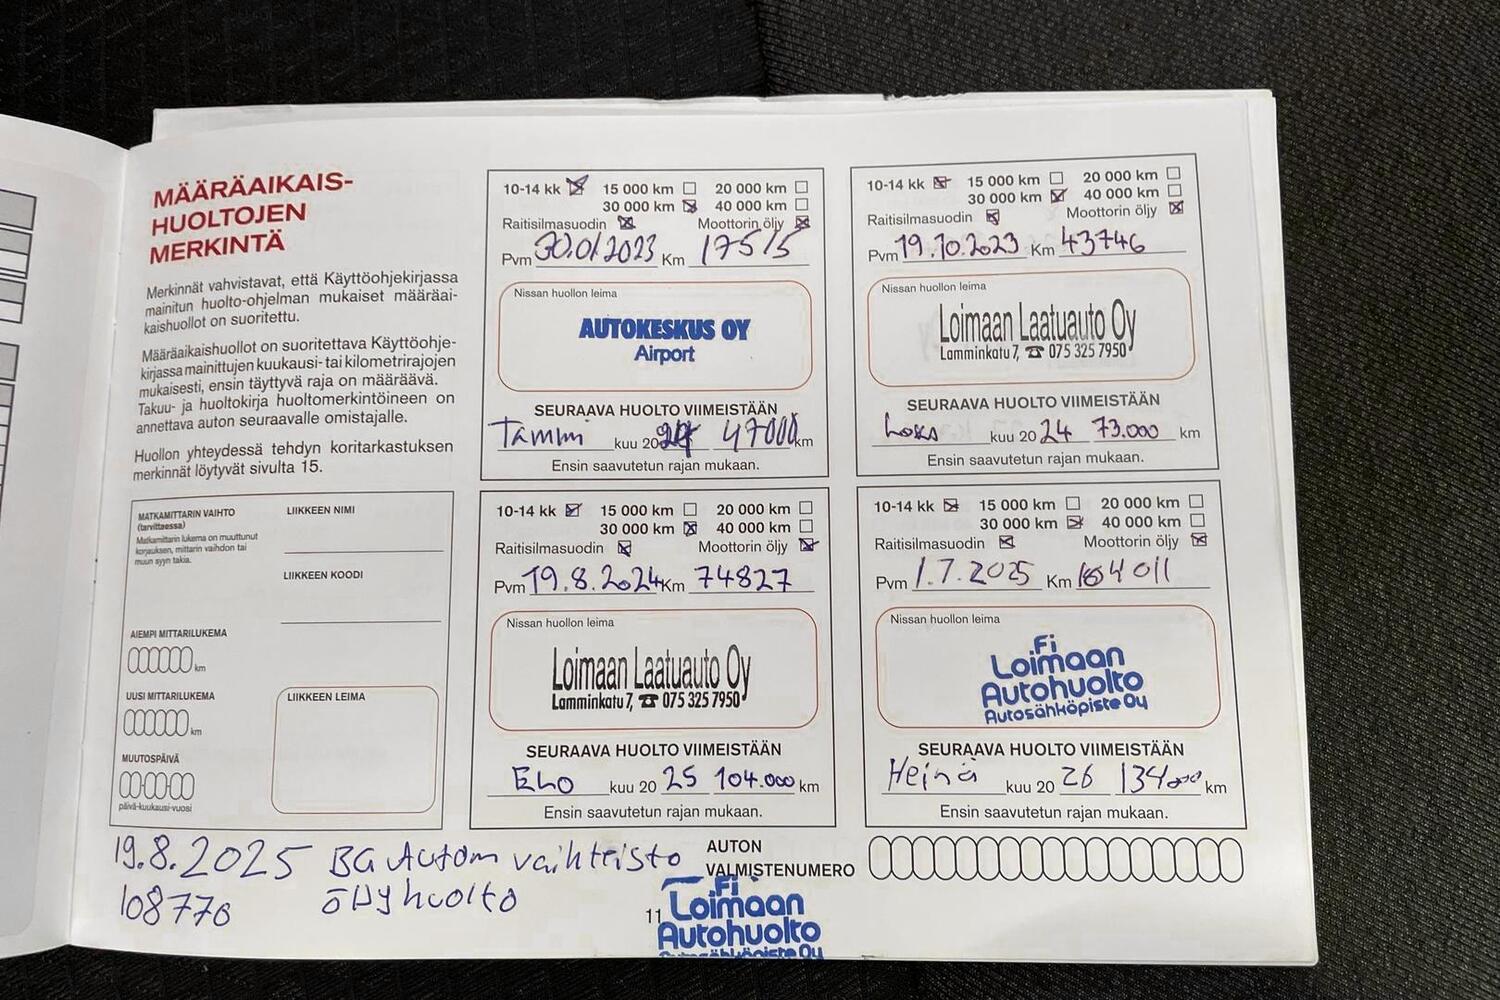 MÄÄRÄAIKAIS-
HUOLTOJEN
MERKINTÄ
Merkinnät vahvistavat, että Käyttöohjekirjassa
mainitun huolto-ohjelman mukaiset määräai-
kaishuollot on suoritettu.
Määräaikaishuollot on suoritettava Käyttöohje-
kirjassa mainittujen kuukausi- tai kilometrirajojen
mukaisesti, ensin täyttyvä raja on määräävä.
Takuu- ja huoltokirja huoltomerkintöineen on
annettava auton seuraavalle omistajalle.
Huollon yhteydessä tehdyn koritarkastuksen
merkinnät löytyvät sivulta 15.
MATKAMITTARIN VAIHTO
(tarvittaessa)
Matkamittarin lukema on muuttunut
korjauksen, mittarin vaihdon tai
muun syyn takia.
LIIKKEEN NIMI
LIIKKEEN KOODI
AIEMPI MITTARILUKEMA
km
UUSI MITTARILUKEMA
km
MUUTOSPÄIVÄ
päivä-kuukausi-vuosi
LIIKKEEN LEIMA
10-14 kk 15 000 km 20 000 km
30 000 km 40 000 km
Raitisilmasuodin Moottorin öljy
Pvm 30.01.2023 Km 17515
Nissan huollon leima
AUTOKESKUS OY
Airport
SEURAAVA HUOLTO VIIMEISTÄÄN
Tammi kuu 2024 47000 km
Ensin saavutetun rajan mukaan.
10-14 kk 15 000 km 20 000 km
30 000 km 40 000 km
Raitisilmasuodin Moottorin öljy
Pvm 19.10.2023 Km 43746
Nissan huollon leima
Loimaan Laatuauto Oy
Lamminkatu 7, ☎ 075 325 7950
SEURAAVA HUOLTO VIIMEISTÄÄN
Loka kuu 20 24 73.000 km
Ensin saavutetun rajan mukaan.
10-14 kk 15 000 km 20 000 km
30 000 km 40 000 km
Raitisilmasuodin Moottorin öljy
Pvm 19.8.2024 Km 74827
Nissan huollon leima
Loimaan Laatuauto Oy
Lamminkatu 7, ☎ 075 325 7950
SEURAAVA HUOLTO VIIMEISTÄÄN
Elo kuu 20 25 104.000 km
Ensin saavutetun rajan mukaan.
10-14 kk 15 000 km 20 000 km
30 000 km 40 000 km
Raitisilmasuodin Moottorin öljy
Pvm 1.7.2025 Km 104011
Nissan huollon leima
Fi
Loimaan
Autohuolto
Autosähköpiste Oy
SEURAAVA HUOLTO VIIMEISTÄÄN
Heinä kuu 20 26 134000 km
Ensin saavutetun rajan mukaan.
19.8.2025 BG Autom vaihteisto
108770 öljyhuolto
AUTON
VALMISTENUMERO
11
Fi
Loimaan
Autohuolto
Autosähköpiste Oy